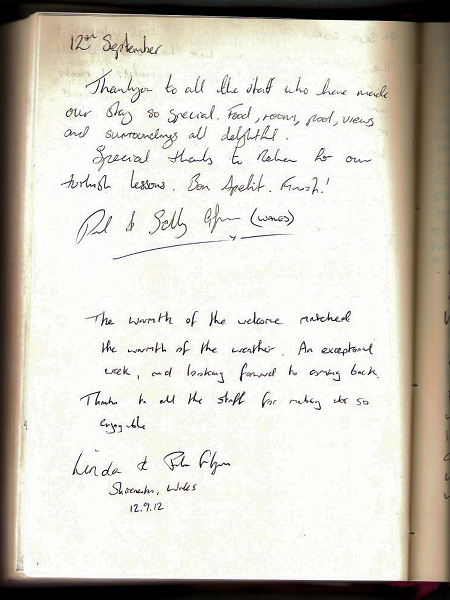 12th September
Thankyou to all the staff who have made
our stay so special. Food, room, pool, views
and surroundings all delightful.
Special thanks to for our
turkish lessons. Bon Apetit.
& Sally (WALES)
The warmth of the welcome matched
the warmth of the weather. An exceptional
week, and looking forward to coming back.
Thanks to all the staff for making it so
enjoyable
Linda &
Wales
12.9.12